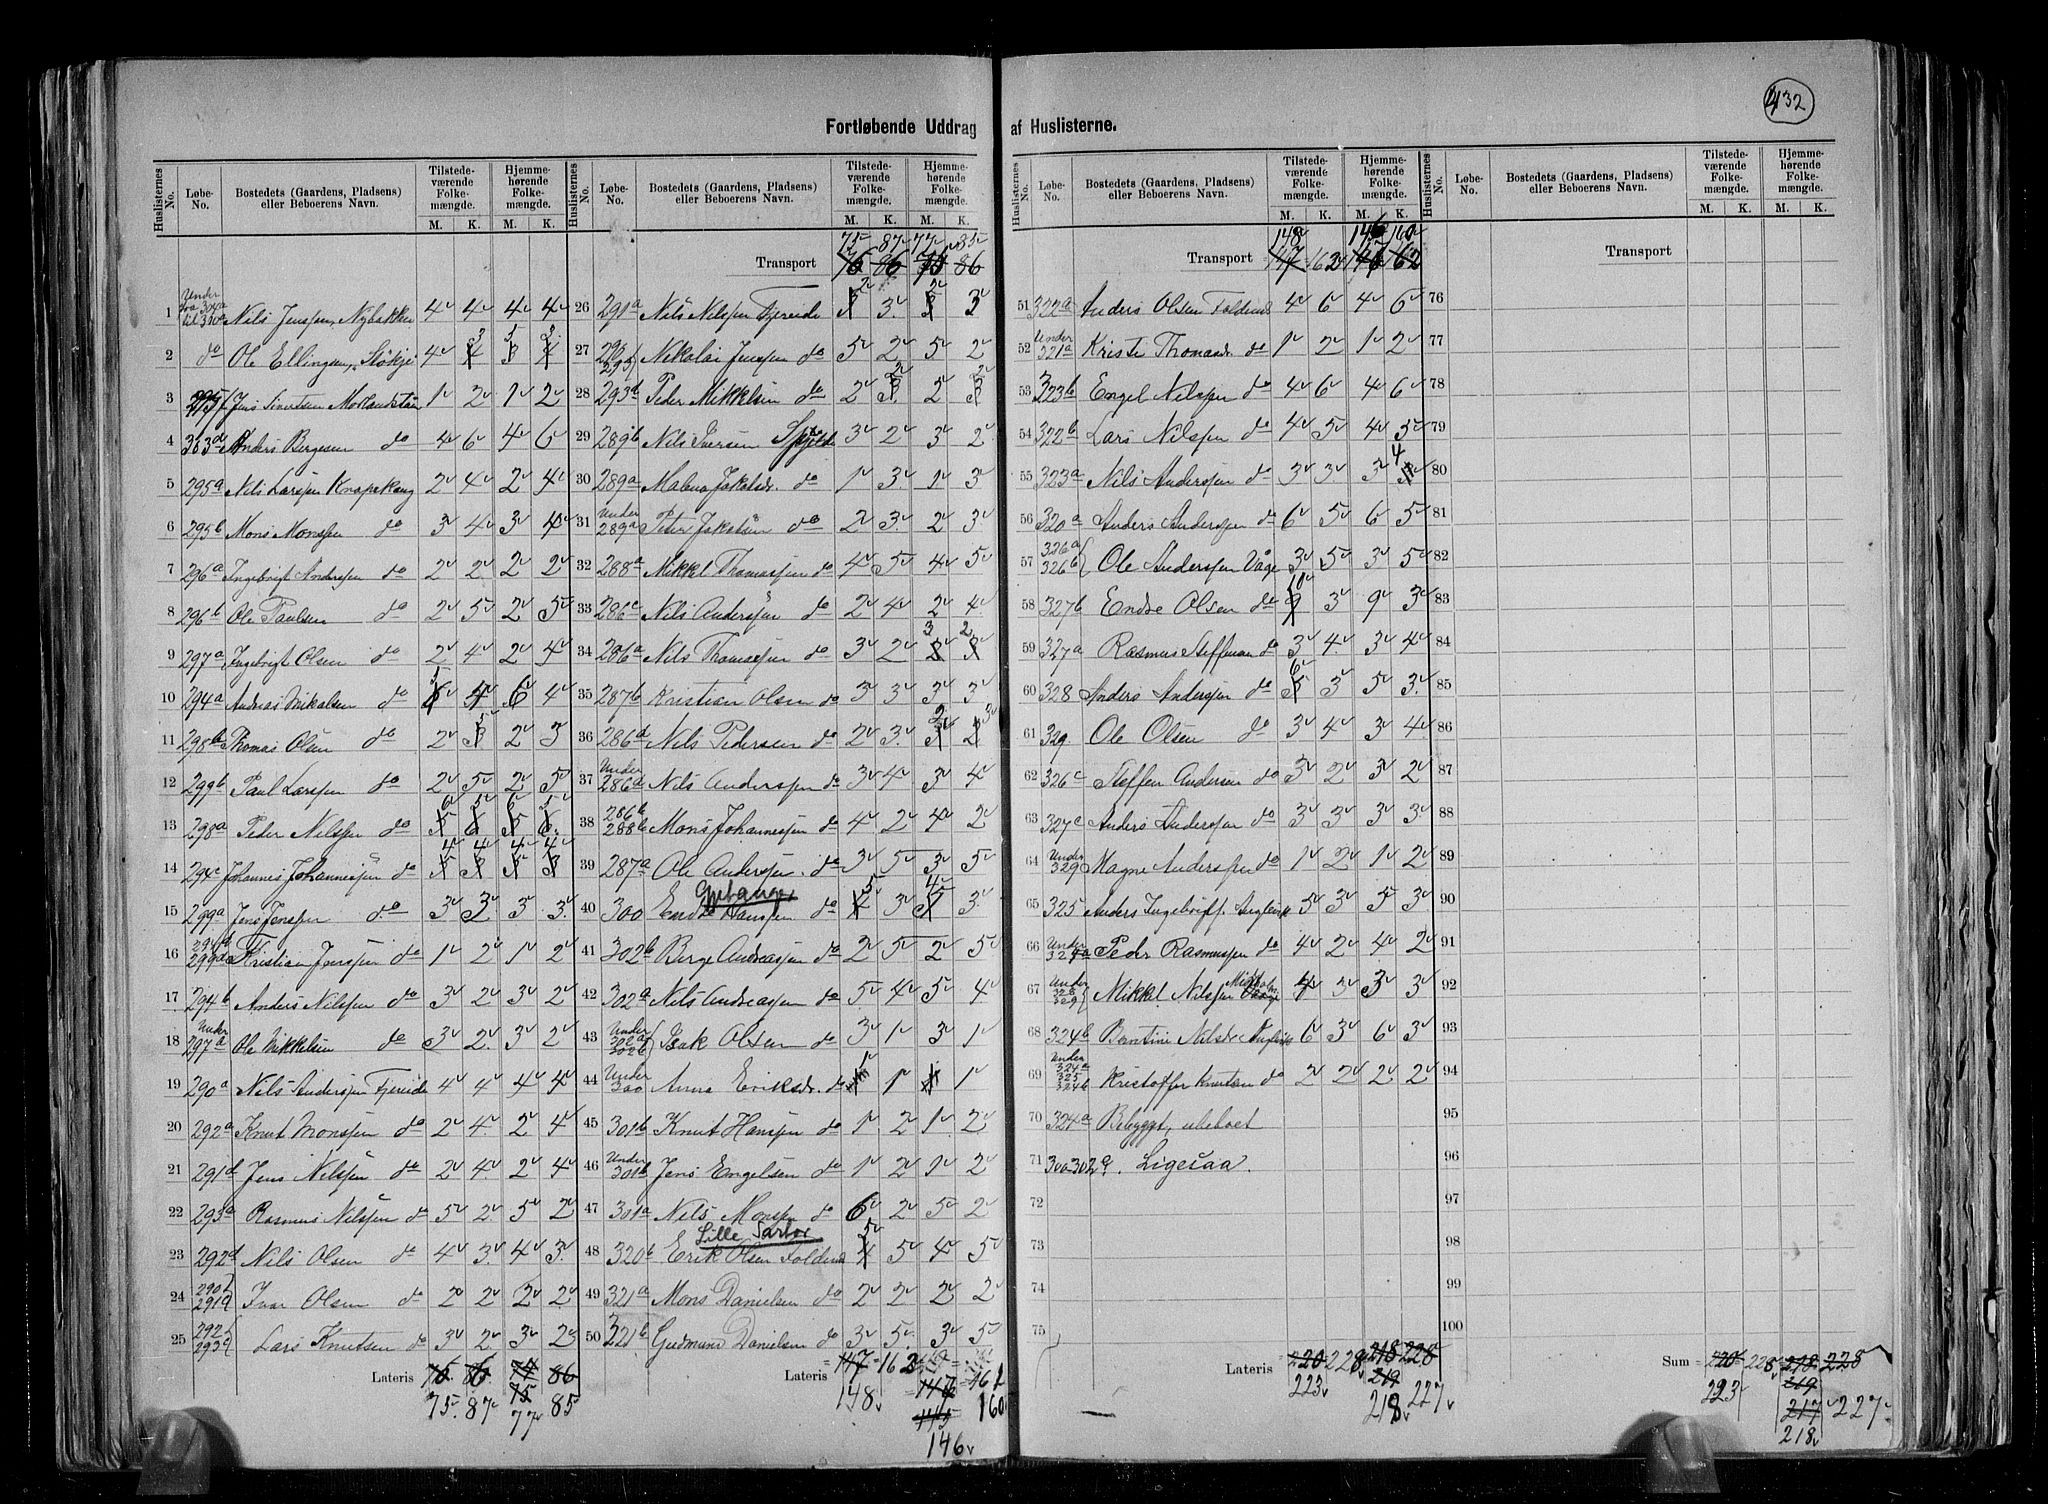 432
Fortløbende Uddrag af Huslisterne.
Huslisternes No. Løbe-No. Bostedets (Gaardens, Pladsens) eller Beboerens Navn. Tilstedeværende Folkemængde. Hjemmehørende Folkemængde.
M. K. M. K.
1 Nils Jenssen, Nybakken 4 4 4 4
2 do Ole Ellingsen, Stökje 4
3 Jens Sivertsen Morlandstøn 1 2 1 2
4 303d Anders Bergesen do 4 6 4 6
5 295a Nils Larssen Knapskaug 2 4 2 4
6 295b Mons Monssen do 3 4 3 4
7 296a Ingebrigt Anderssen do 2 2 2 2
8 296b Ole Paulsen do 2 5 2 5
9 297a Ingebrigt Olsen do 2 4 2 4
10 294a Andreas Mikalsen do 4 6 4
11 298b Thomas Olsen do 2 2 3
12 299b Paul Larssen do 2 5 2 5
13 298a Peder Nilssen do
14 294c Johannes Johannessen do 4 4 4 4
15 299a Jens Jenssen do 3 3 3 3
16 Kristian Jenssen do 1 2 1 2
17 294b Anders Nilssen do 3 2 3 2
18 Under 297a Ole Mikkelsen do 3 2 3 2
19 290a Nils Anderssen Fjereide 4 4 4 4
20 292a Knut Monssen do 2 4 2 4
21 291d Jens Nilssen do 2 4 2 4
22 293a Rasmus Nilssen do 5 2 5 2
23 292d Nils Olsen do 4 3 4 3
24 Ivar Olsen do 2 2 2 2
25 Lars Knutsen do 3 2 3 2
Lateris 76 86 74 86
75
75 87 77 85
75 87 77 85
Transport 76 86 86
26 291a Nils Nilssen Fjereide 2 3 2 3
27 Nikolai Jenssen do 5 2 5 2
28 293b Peder Mikkelsen do 2 2 2 2
29 289b Nils Iversen 3 2 3 2
30 289a Malene Jakobsdr. do 1 3 1 3
31 Under 289a Peter Jakobsen do 2 3 2 3
32 288a Mikkel Thomassen do 4 5 4 5
33 286c Nils Anderssen do 2 4 2 4
34 286a Nils Thomassen do 3 2 3 2
35 287b Kristian Olsen do 3 3 3 3
36 286d Nils Pedersen do 2 3 2 3
37 Under 286a Nils Anderssen do 3 4 3 4
38 286b 288b Mons Johannessen do 4 2 4 2
39 287a Ole Anderssen do 3 5 3 5
40 300 Endre Hanssen do 5 3 3
41 302b Berge Andreassen do 2 5 2 5
42 302a Nils Andreassen do 5 4 5 4
43 Under 302a 302b Isak Olsen do 3 1 3 1
44 Under 300 Anna Eriksdr. do 1 1 1
45 301b Knut Hanssen do 1 2 1 2
46 Under 301b Jens Engelsen do 1 2 1 2
47 301a Nils Monssen do 6 2 5 2
Lille Sartor
48 320b Erik Olsen Foldenes 5 5 4 5
49 321a Mons Danielsen do 2 2 2 2
50 321b Gudmund Danielsen do 3 5 3 5
Lateris 147 162 161
148 145 160
146
148 146 160
Transport 147 162 162
51 322a Anders Olsen Foldenes 4 6 4 6
52 Under 321a Kristi Thomasdr. do 1 2 1 2
53 323b Engel Nilssen do 4 6 4 6
54 322b Lars Nilssen do 4 5 4 5
55 323a Nils Anderssen do 3 3 3 4
56 320a Anders Anderssen do 6 5 6 5
57 326a 326b Ole Anderssen Våge 3 5 3 5
58 327b Endre Olsen do 10 3 9 3
59 327a Rasmus Steffensen do 3 4 3 4
60 328 Anders Anderssen do 6 3 5 3
61 329. Ole Olsen do 3 4 3 4
62 326c Steffen Andersen do 3 2 3 2
63 327c Anders Anderssen do 3 3 3 3
64 Under 329 Magne Anderssen do 1 2 1 2
65 325 Anders Ingebrigtss. 5 3 5 3
66 Under 324a Peder Rasmussen do 4 2 4 2
67 Under 328 329 Mikkel Nilssen 4 3 3 3
68 324b Berntine Nilsdr. 6 3 6 3
69 Under 324a 325 324b Kristoffer Knutsen do 2 2 2 2
70 324a Bebygget, ubeboet
71 300 302a. Ligesaa.
72
73
74
75
Lateris 220 228 218 228
223 219
218 227
Transport
76
77
78
79
80
81
82
83
84
85
86
87
88
89
90
91
92
93
94
95
96
97
98
99
100
Sum 220 228 218 228
223 219
217 227
218